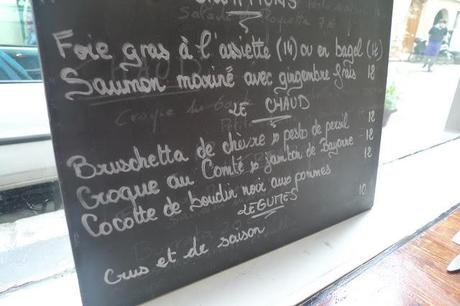 Foie gras à l'assiette (14) ou en bagel (12)
Saumon mariné avec gingembre frais 12
LE CHAUD
Bruschetta de chèvre pesto de persil 12
Croque au Comté jambon de Bayonne 12
Cocotte de boudin noir aux pommes 10
LEGUMES
Crus et de saison